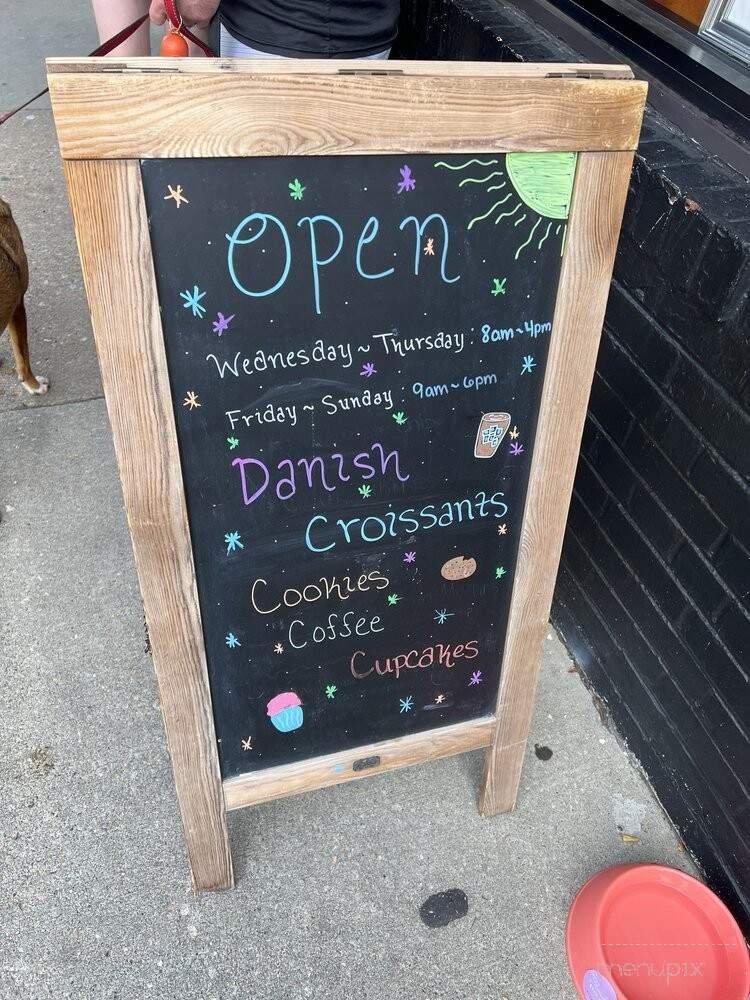 Open
Wednesday ~ Thursday : 8am ~ 4pm
Friday ~ Sunday : 9am ~ 6pm
Danish
Croissants
Cookies
Coffee
Cupcakes
menupix